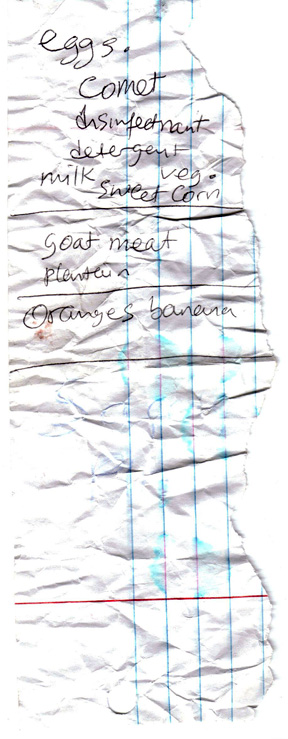 eggs.
Comet
disinfectnant
detergent
milk veg.
sweet corn
goat meat
plantain
Oranges banana